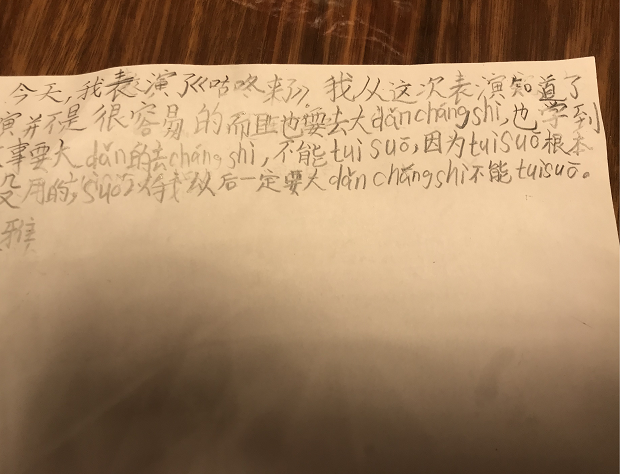 今天,我表演了《咕咚来了》,我从这次表演知道了
演并不是很容易的而且也要去大dǎn chángshì,也学到
事要大dǎn的去chángshì,不能tuìsuō,因为tuìsuō根本
没用的,suǒ以我以后一定要大dǎn chángshì不能tuìsuō。
雅